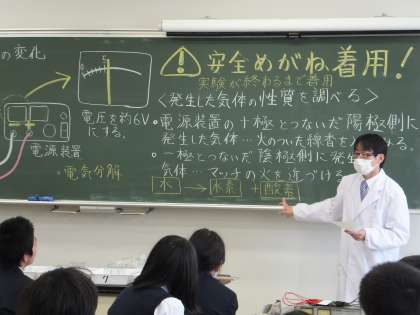 の変化
⚠安全めがね着用!
実験が終わるまで着用
<発生した気体の性質を調べる>
5
電圧を約6V
にする。
電源装置
・電気分解
・電源装置の+極とつないだ陽極側に
発生した気体…火のついた線香を
・−極とつないだ陰極側に発生
気体…マッチの火を近づける
水→水素+酸素